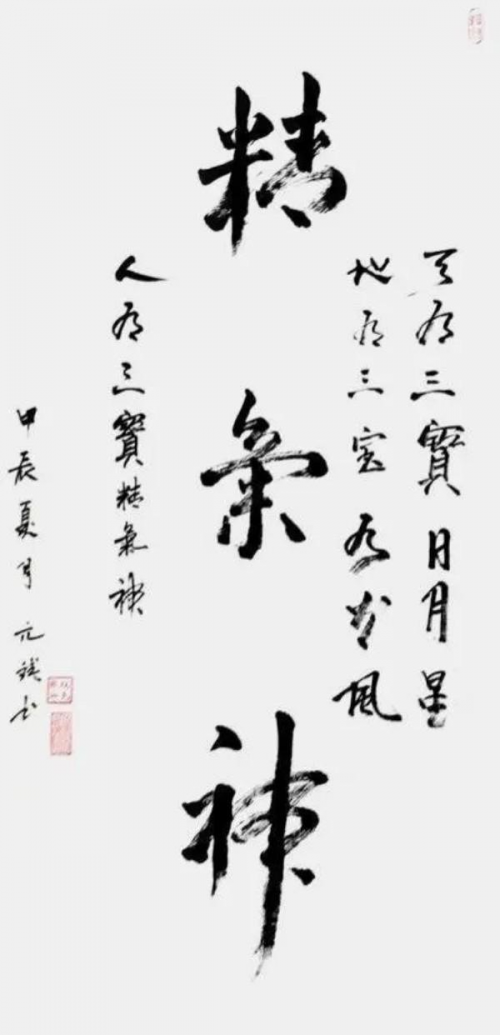 天有三寶日月星
地有三宝水火風
精氣神
人有三寶精氣神
甲辰夏月元书